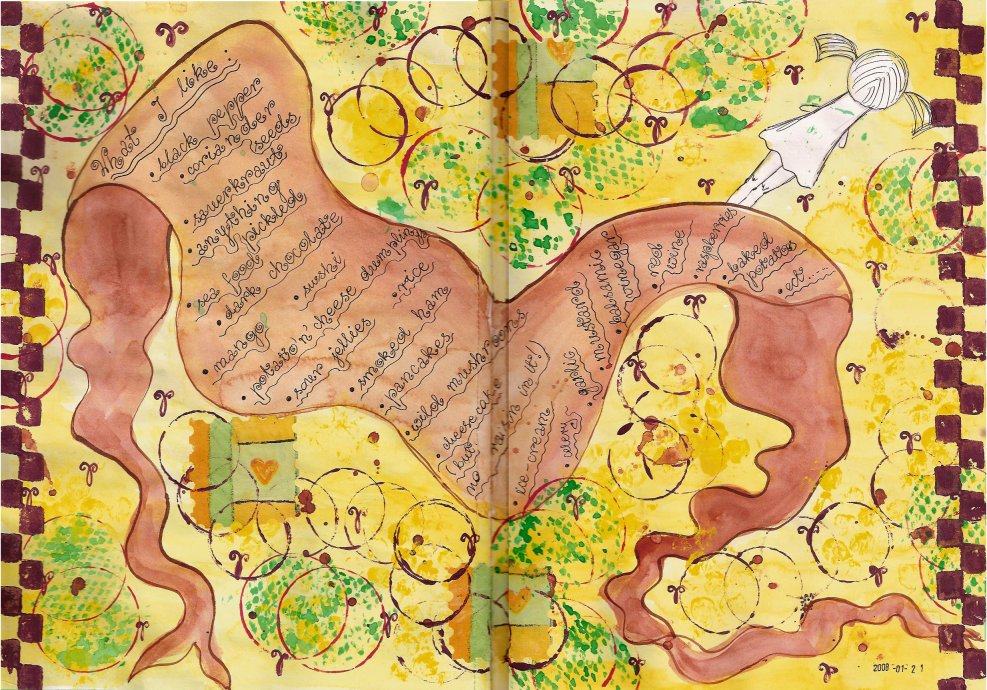 What I like:
• black pepper
• coriander
seeds
• sauerkraut
• anything
pickled
• sea food
• dark chocolate
• mango
• sushi
• potato n' cheese dumplings
• sour jellies
• rice
• smoked ham
• pancakes
• wild mushrooms
• cheesecake
but no
raisin in it!)
• ice-cream
• celery
• garlic
• mustard
• balsamic
vinegar
• red
wine
• raspberries
• baked
potatoes
2008-01-21